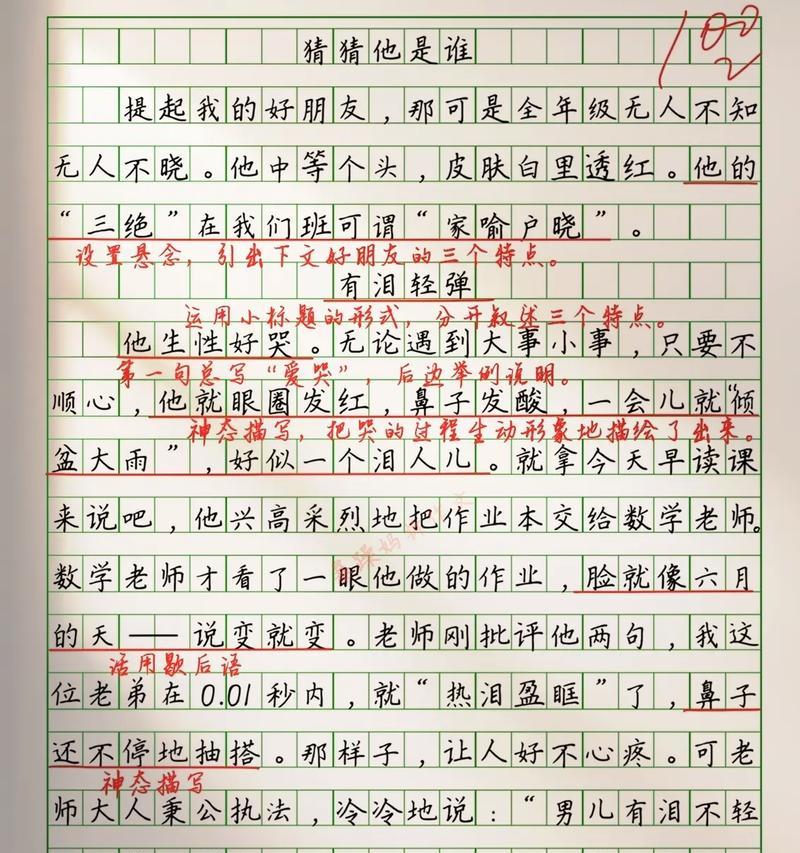 猜猜他是谁
100
2
提起我的好朋友，那可是全年级无人不知
无人不晓。他中等个头，皮肤白里透红。他的
“三绝”在我们班可谓“家喻户晓”。
设置悬念，引出下文好朋友的三个特点。
有泪轻弹
运用小标题的形式，分开叙述三个特点。
他生性好哭。无论遇到大事小事，只要不
第一句总写“爱哭”，后边举例说明。
顺心，他就眼圈发红，鼻子发酸，一会儿就“倾
神态描写，把哭的过程生动形象地描绘了出来。
盆大雨”，好似一个泪人儿。就拿今天早读课
来说吧，他兴高采烈地把作业本交给数学老师。
数学老师才看了一眼他做的作业，脸就像六月
的天——说变就变。老师刚批评他两句，我这
活用歇后语
位老弟在0.01秒内，就“热泪盈眶”了，鼻子
还不停地抽搭。那样子，让人好不心疼。可老
神态描写
师大人秉公执法，冷冷地说：“男儿有泪不轻